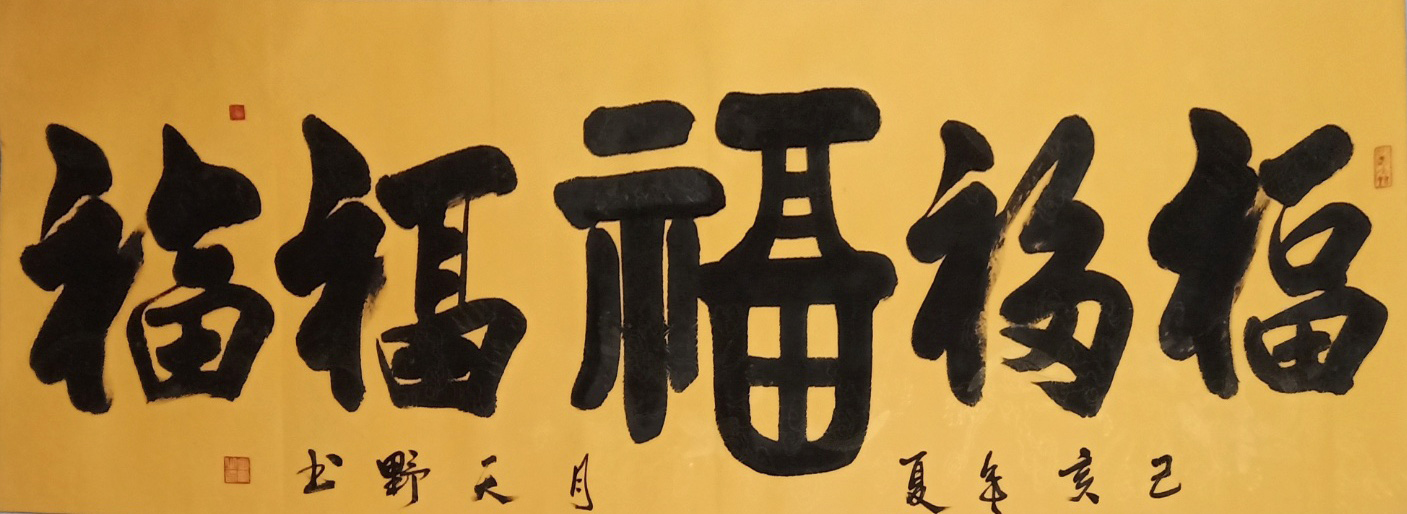 福福福福福
己亥年夏月天野书